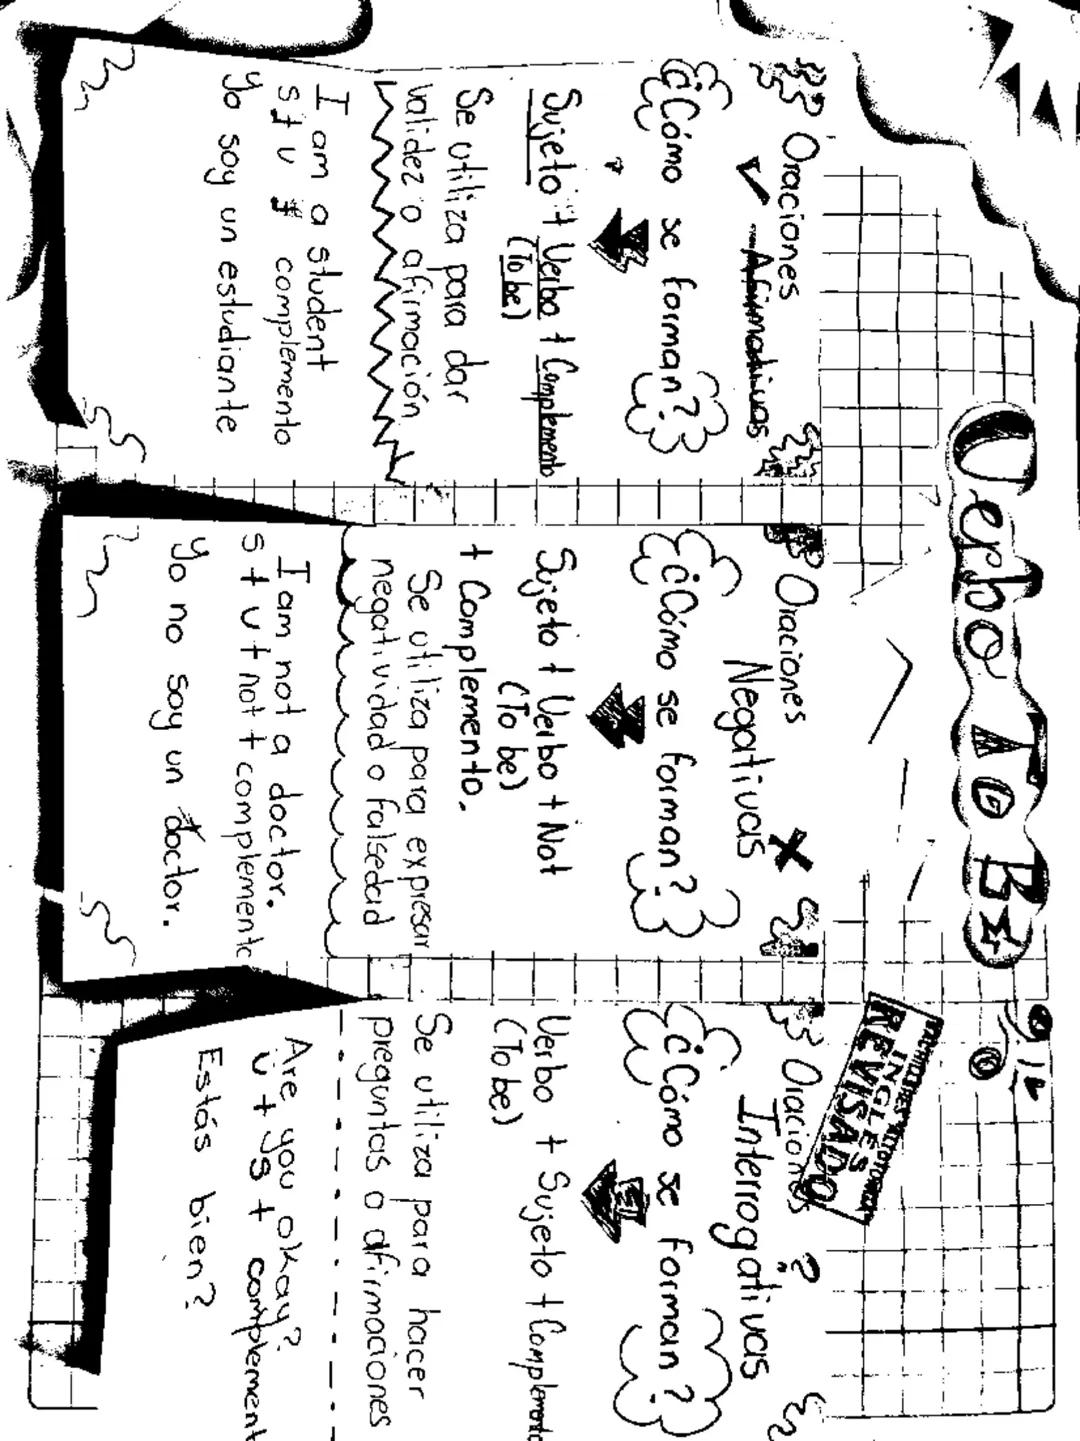 Verbo To Be
INGLÉS
REVISADO
Oraciones
Afirmativas
¿Cómo se forman?
Sujeto + Verbo + Complemento
(To be)
Se utiliza para dar
validez o afirmación
I am a student
s + v + complemento
Yo soy un estudiante
Oraciones
Negativas
¿Cómo se forman?
Sujeto + Verbo + Not
(To be)
+ Complemento.
Se utiliza para expresar
negatividad o falsedad
I am not a doctor.
s + v + not + complemento
Yo no soy un doctor.
Oraciones ?
Interrogativas
¿Cómo se forman?
Verbo + Sujeto + Complemento
(To be)
Se utiliza para hacer
preguntas o afirmaciones
Are you okay?
v + s + complement
Estás bien?